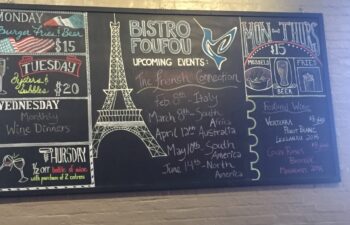 MONDAY
Burger Fries & Beer
$15
TUESDAY
Oysters &
bubbles
$20
WEDNESDAY
Monthly
Wine Dinners
THURSDAY
1/2 OFF bottle of wine
with purchase of 2 entrees
BISTRO
FOUFOU
UPCOMING EVENTS:
The French Connection
Feb 8th - Italy
March 8th - South
Africa
April 12th Australia
May 10th South
America
June 14th - North
America
MON - THURS
$15
MUSSELS
FRIES
BEER
Featured Wine
Pinot Blanc